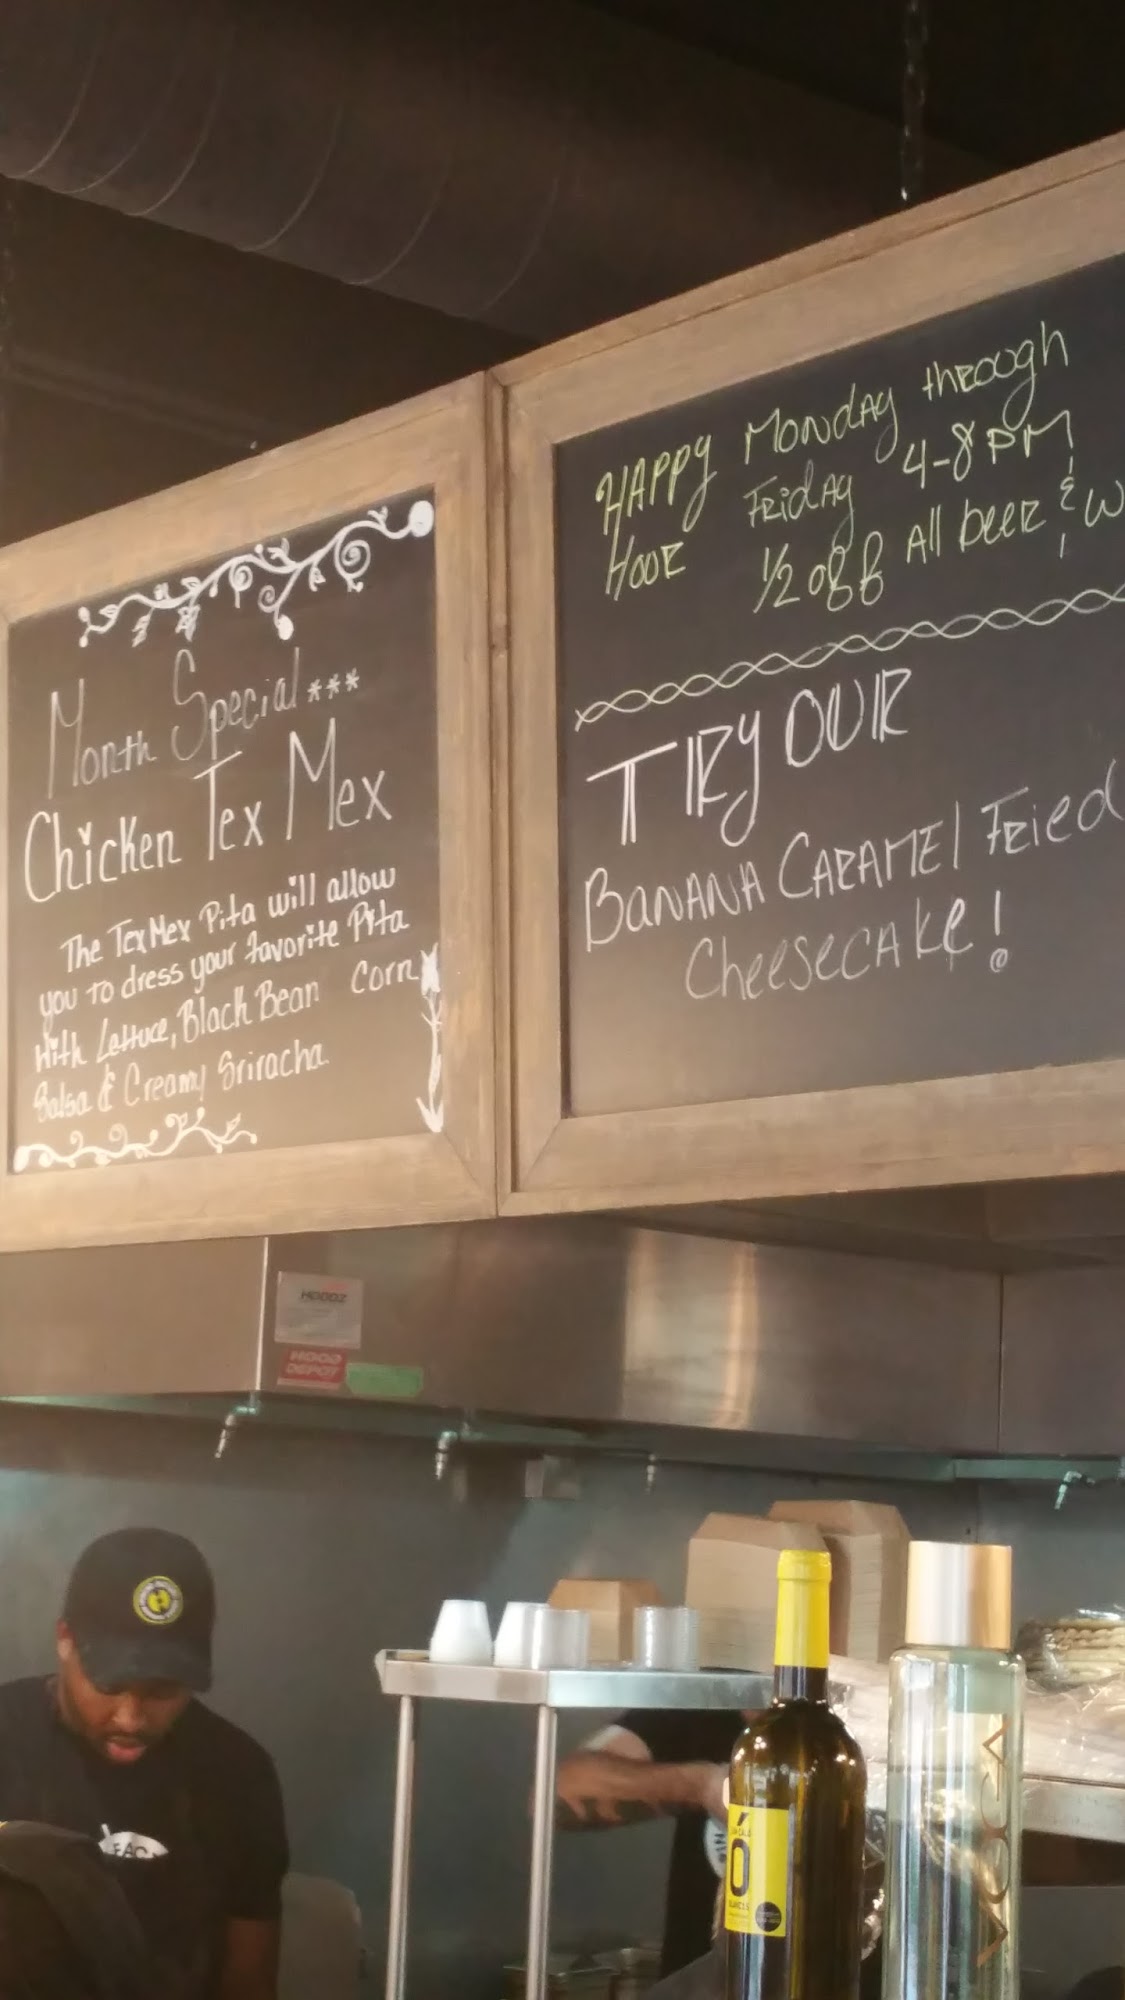 Month Special ***
Chicken Tex Mex
The Tex Mex Pita will allow
you to dress your favorite Pita
With Lettuce, Black Bean Corn
Salsa & Creamy Sriracha.
HAPPY Monday through
HOUR Friday 4-8 PM
1/2 off All beer & W
TRY OUR
BANANA CARAMEL Fried
Cheesecake!
HOODZ
HOOD
DEPOT
Ó
VOGA